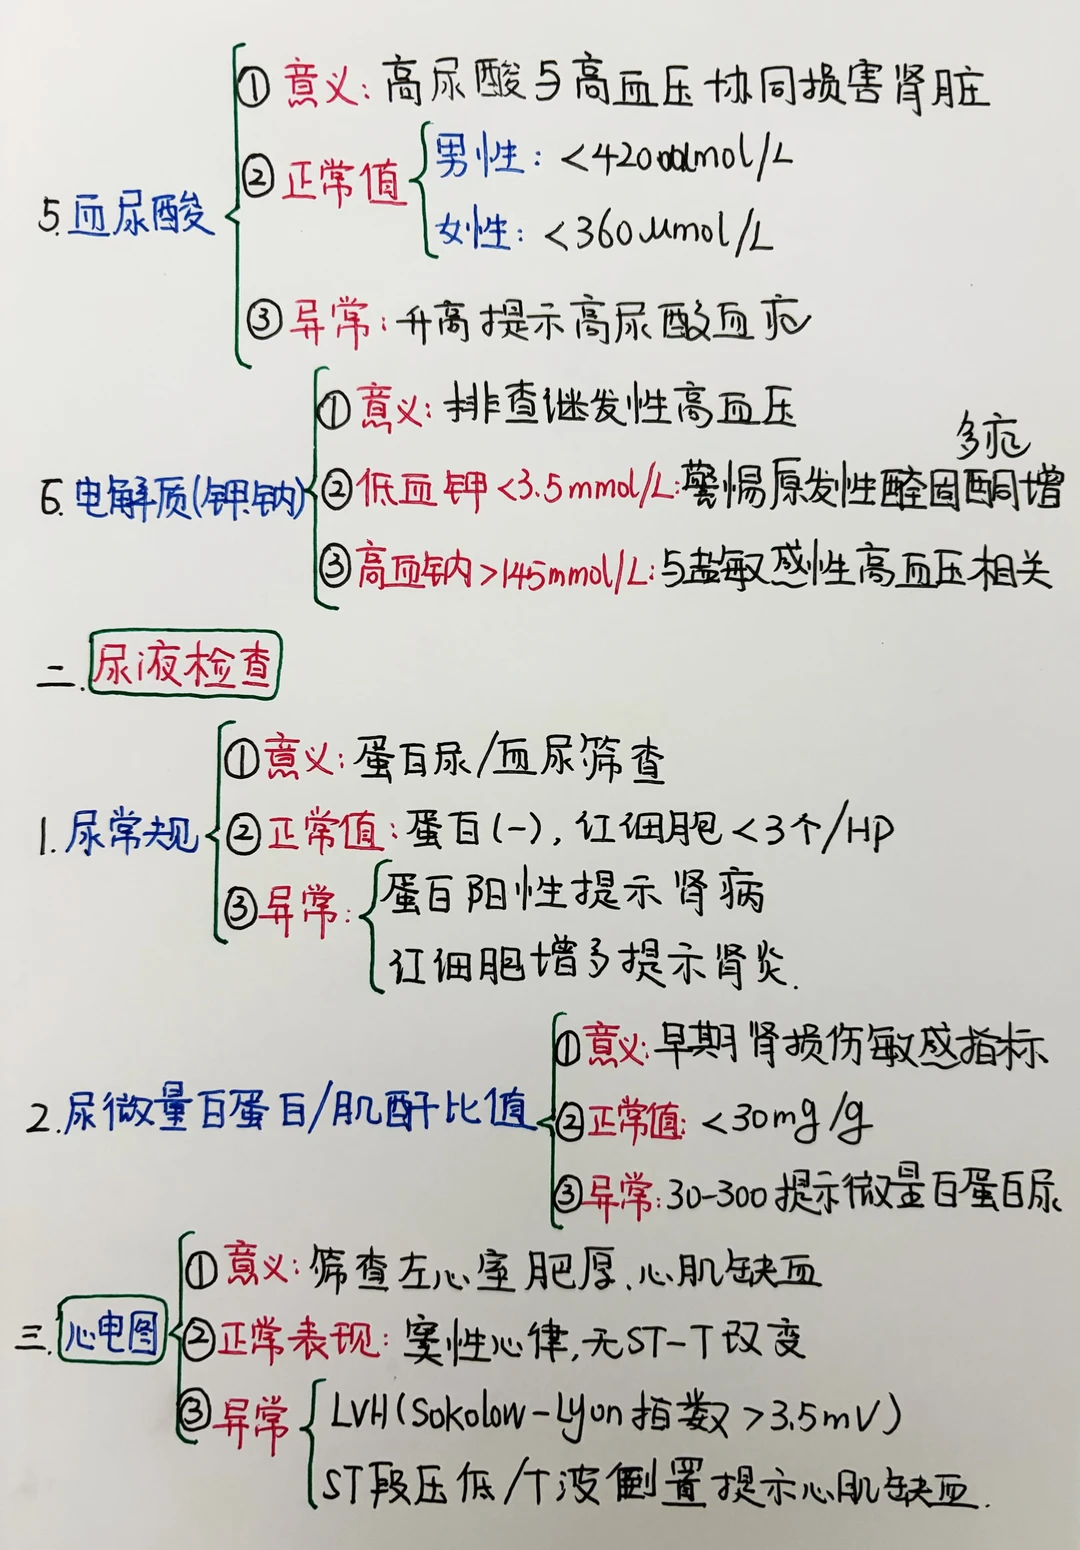 5.血尿酸
①意义:高尿酸与高血压协同损害肾脏
②正常值
男性:<420umol/L
女性:<360μmol/L
③异常:升高提示高尿酸血症
6.电解质(钾.钠)
①意义:排查继发性高血压
②低血钾<3.5mmol/L:警惕原发性醛固酮增
多症
③高血钠>145mmol/L:与盐敏感性高血压相关
二.尿液检查
1.尿常规
①意义:蛋白尿/血尿筛查
②正常值:蛋白(-),红细胞<3个/HP
③异常:
蛋白阳性提示肾病
红细胞增多提示肾炎.
2.尿微量白蛋白/肌酐比值
①意义:早期肾损伤敏感指标
②正常值:<30mg/g
③异常:30-300提示微量白蛋白尿
三.心电图
①意义:筛查左心室肥厚.心肌缺血
②正常表现:窦性心律,无ST-T改变
③异常
LVH(Sokolow-Lyon指数>3.5mV)
ST段压低/T波倒置提示心肌缺血.